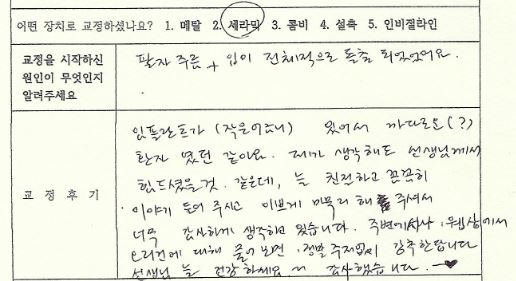 어떤 장치로 교정하셨나요? 1. 메탈 2. 세라믹 3. 콤비 4. 설측 5. 인비절라인
교정을 시작하신
원인이 무엇인지
알려주세요
팔자 주름 + 입이 전체적으로 돌출 되었었어요.
교 정 후 기
임플란트가 (작은어금니) 있어서 까다로운(?)
환자 였던 같아요. 제가 생각해도 선생님께서
힘드셨을것 같은데, 늘 친절하고 꼼꼼히
이야기 들어 주시고 이쁘게 마무리 해 주셔서
너무 감사하게 생각하고 있습니다. 주변에서나, 웹상에서
대해 물어보면, 정말 주저없이 강추한답니다
선생님 늘 건강하세요 ~ 감사했습니다. ♥